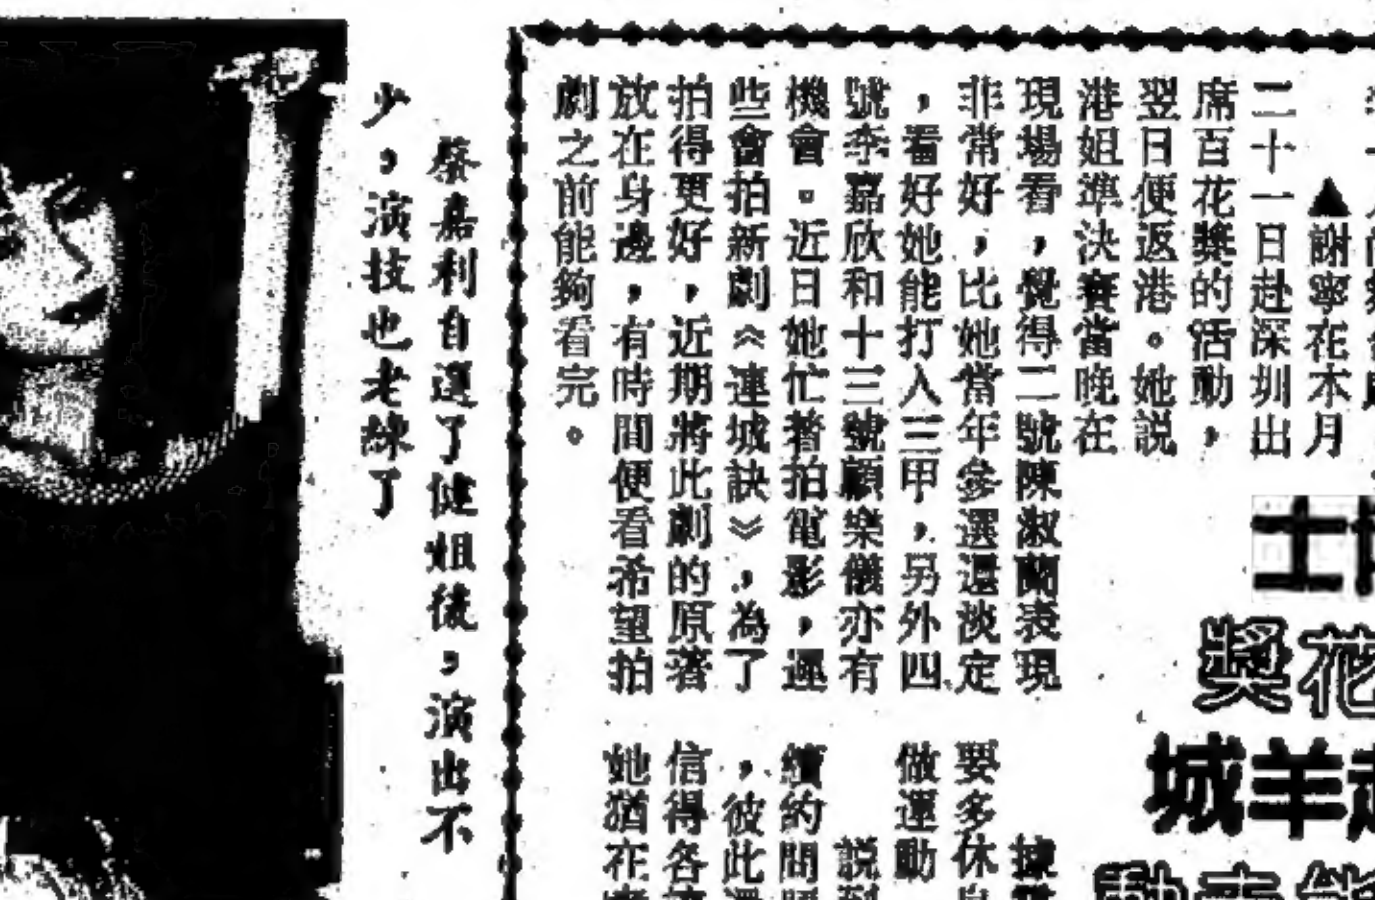 ▲謝寧在本月
二十一日赴深圳出
席百花獎的活動，
翌日便返港。她説
港姐準決賽當晚在
現場看，覺得二號陳淑蘭表現
非常好，比她當年參選還淡定
，看好她能打入三甲，另外四
號李嘉欣和十三號顧樂儀亦有
機會。近日她忙著拍電影，遲
些會拍新劇《連城訣》，為了
拍得更好，近期將此劇的原著
放在身邊，有時間便看希望拍
劇之前能夠看完。
獎花
城羊
要多休
做運動
續約問
，彼此
信得各
她猶在
蔡嘉利自選了健姐後，演出不
少，演技也老練了